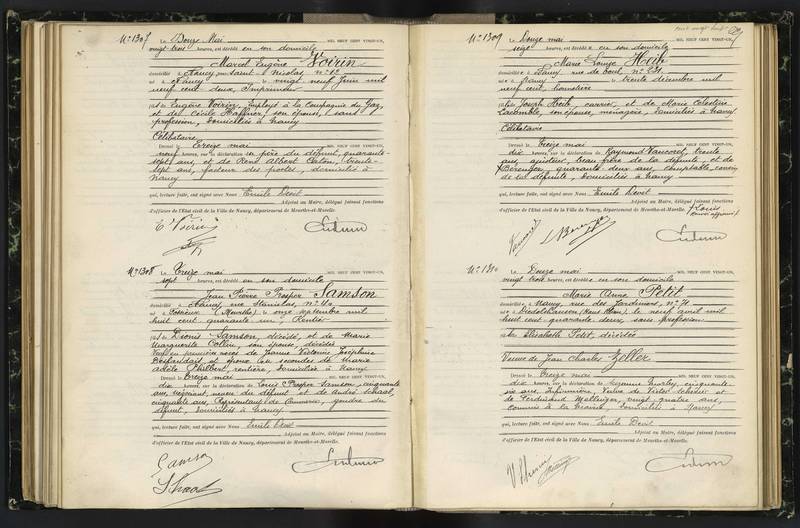 N° 1307 Le Douze Mai MIL NEUF CENT VINGT-UN,
vingt trois heures, est décédé en son domicile
Marcel Eugène Voirin
domicilié à Nancy, Saint Nicolas n°
né à Nancy le vingt neuf Juin mil
neuf cent deux, Imprimeur
fils de Eugène Voirin, Employé à la Compagnie du Gaz,
et de Cécile Haffner, son épouse, sans
profession, domiciliés à Nancy
Célibataire
Dressé le Treize mai MIL NEUF CENT VINGT-UN,
neuf heures, sur la déclaration de père du défunt, quarante
sept ans, et de René Albert Caton, trente
sept ans, facteur des postes, domiciliés à
Nancy
qui, lecture faite, ont signé avec Nous Emile Devit
Adjoint au Maire, délégué faisant fonctions
d'officier de l'Etat civil de la Ville de Nancy, département de Meurthe-et-Moselle.
E Voirin
N° 1308 Le Treize mai MIL NEUF CENT VINGT-UN,
sept heures, est décédé en son domicile
Jean Pierre Prosper Samson
domicilié à Nancy, rue Stanislas, n°
né à (Meurthe) le onze septembre mil
huit cent quarante un, Rentier
fils de Denis Samson, décédé, et de Marie
Marguerite Collin, son épouse, décédée
Veuf en premières noces de Jeanne Victorine Joséphine
et époux en secondes de Marie
Adèle Philbert, rentière, domiciliée à Nancy
Dressé le Treize mai MIL NEUF CENT VINGT-UN,
dix heures, sur la déclaration de Louis Prosper Samson, cinquante
ans, négociant, neveu du défunt et de André Schaal,
cinquante ans, Représentant de Commerce, gendre du
défunt, domiciliés à Nancy
qui, lecture faite, ont signé avec Nous Emile Devit
Adjoint au Maire, délégué faisant fonctions
d'officier de l'Etat civil de la Ville de Nancy, département de Meurthe-et-Moselle.
Samson
Schaal
N° 1309 Le Douze mai MIL NEUF CENT VINGT-UN,
seize heures, est décédée en son domicile
Marie Louise Heib
domiciliée à Nancy rue de Toul n°
née à Nancy le trente décembre mil
neuf cent,
fille de Joseph Heib, carrier, et de Marie Célestine
son épouse, ménagère, domiciliés à Nancy
Célibataire
Dressé le Treize mai MIL NEUF CENT VINGT-UN,
dix heures, sur la déclaration de Raymond Vancoret, trente
ans, ajusteur, beau frère de la défunte, et de
Berenger, quarante deux ans, comptable, cousin
de la défunte, domiciliés à Nancy
qui, lecture faite, ont signé avec Nous Emile Devit
Adjoint au Maire, délégué faisant fonctions
d'officier de l'Etat civil de la Ville de Nancy, département de Meurthe-et-Moselle.
Louis
L Berenger
N° 1310 Le Douze mai MIL NEUF CENT VINGT-UN,
vingt trois heures, est décédée en son domicile
Marie Anne Petit
domiciliée à Nancy, rue des Jardiniers, n° 71
née à (Haut Rhin), le neuf avril mil
huit cent quarante deux, sans profession
fille de Elisabeth Petit, décédée
Veuve de Jean Charles Zeller
Dressé le Treize mai MIL NEUF CENT VINGT-UN,
dix heures, sur la déclaration de Suzanne cinquante
six ans, infirmière, Veuve de Victor et
de Ferdinand vingt quatre ans,
commis à la Mairie, domiciliés à Nancy
qui, lecture faite, ont signé avec Nous Emile Devit
Adjoint au Maire, délégué faisant fonctions
d'officier de l'Etat civil de la Ville de Nancy, département de Meurthe-et-Moselle.